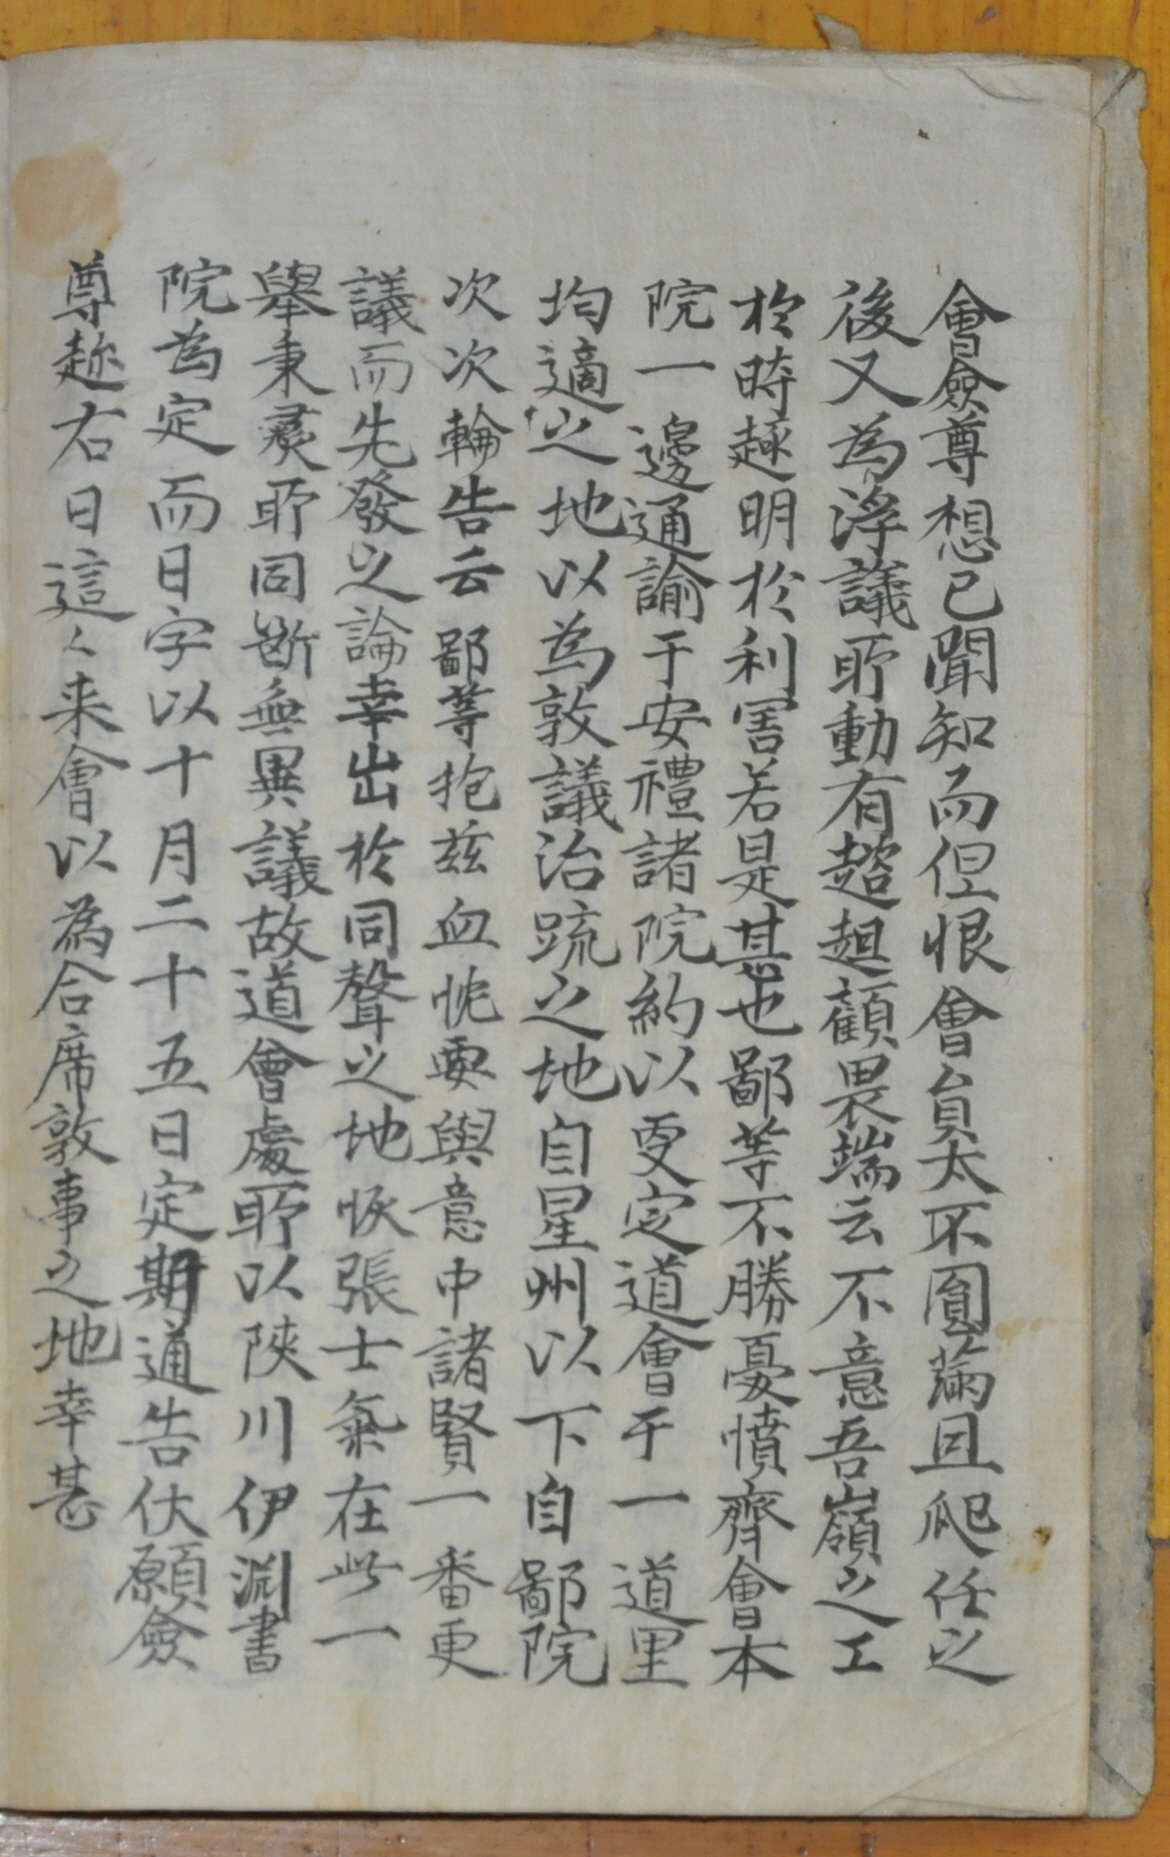 會僉尊想已聞知而但恨會負太不圓滿且爬任之
後又為浮議所動有趦趄顧畏端云不意吾嶺之工
於時趨明於利害若是甚也鄙等不勝憂憤齊會本
院一邊通諭于安禮諸院約以更定道會于一道里
均適之地以為敦議治疏之地自星州以下自鄙院
次次輪告云鄙等抱玆血忱要與意中諸賢一番更
議而先發之論幸出於同聲之地恢張士氣在此一
舉秉彛所同斷無異議故道會處所以陜川伊淵書
院為定而日字以十月二十五日定期通告伏願僉
尊趂右日這々来會以為合席敦事之地幸甚